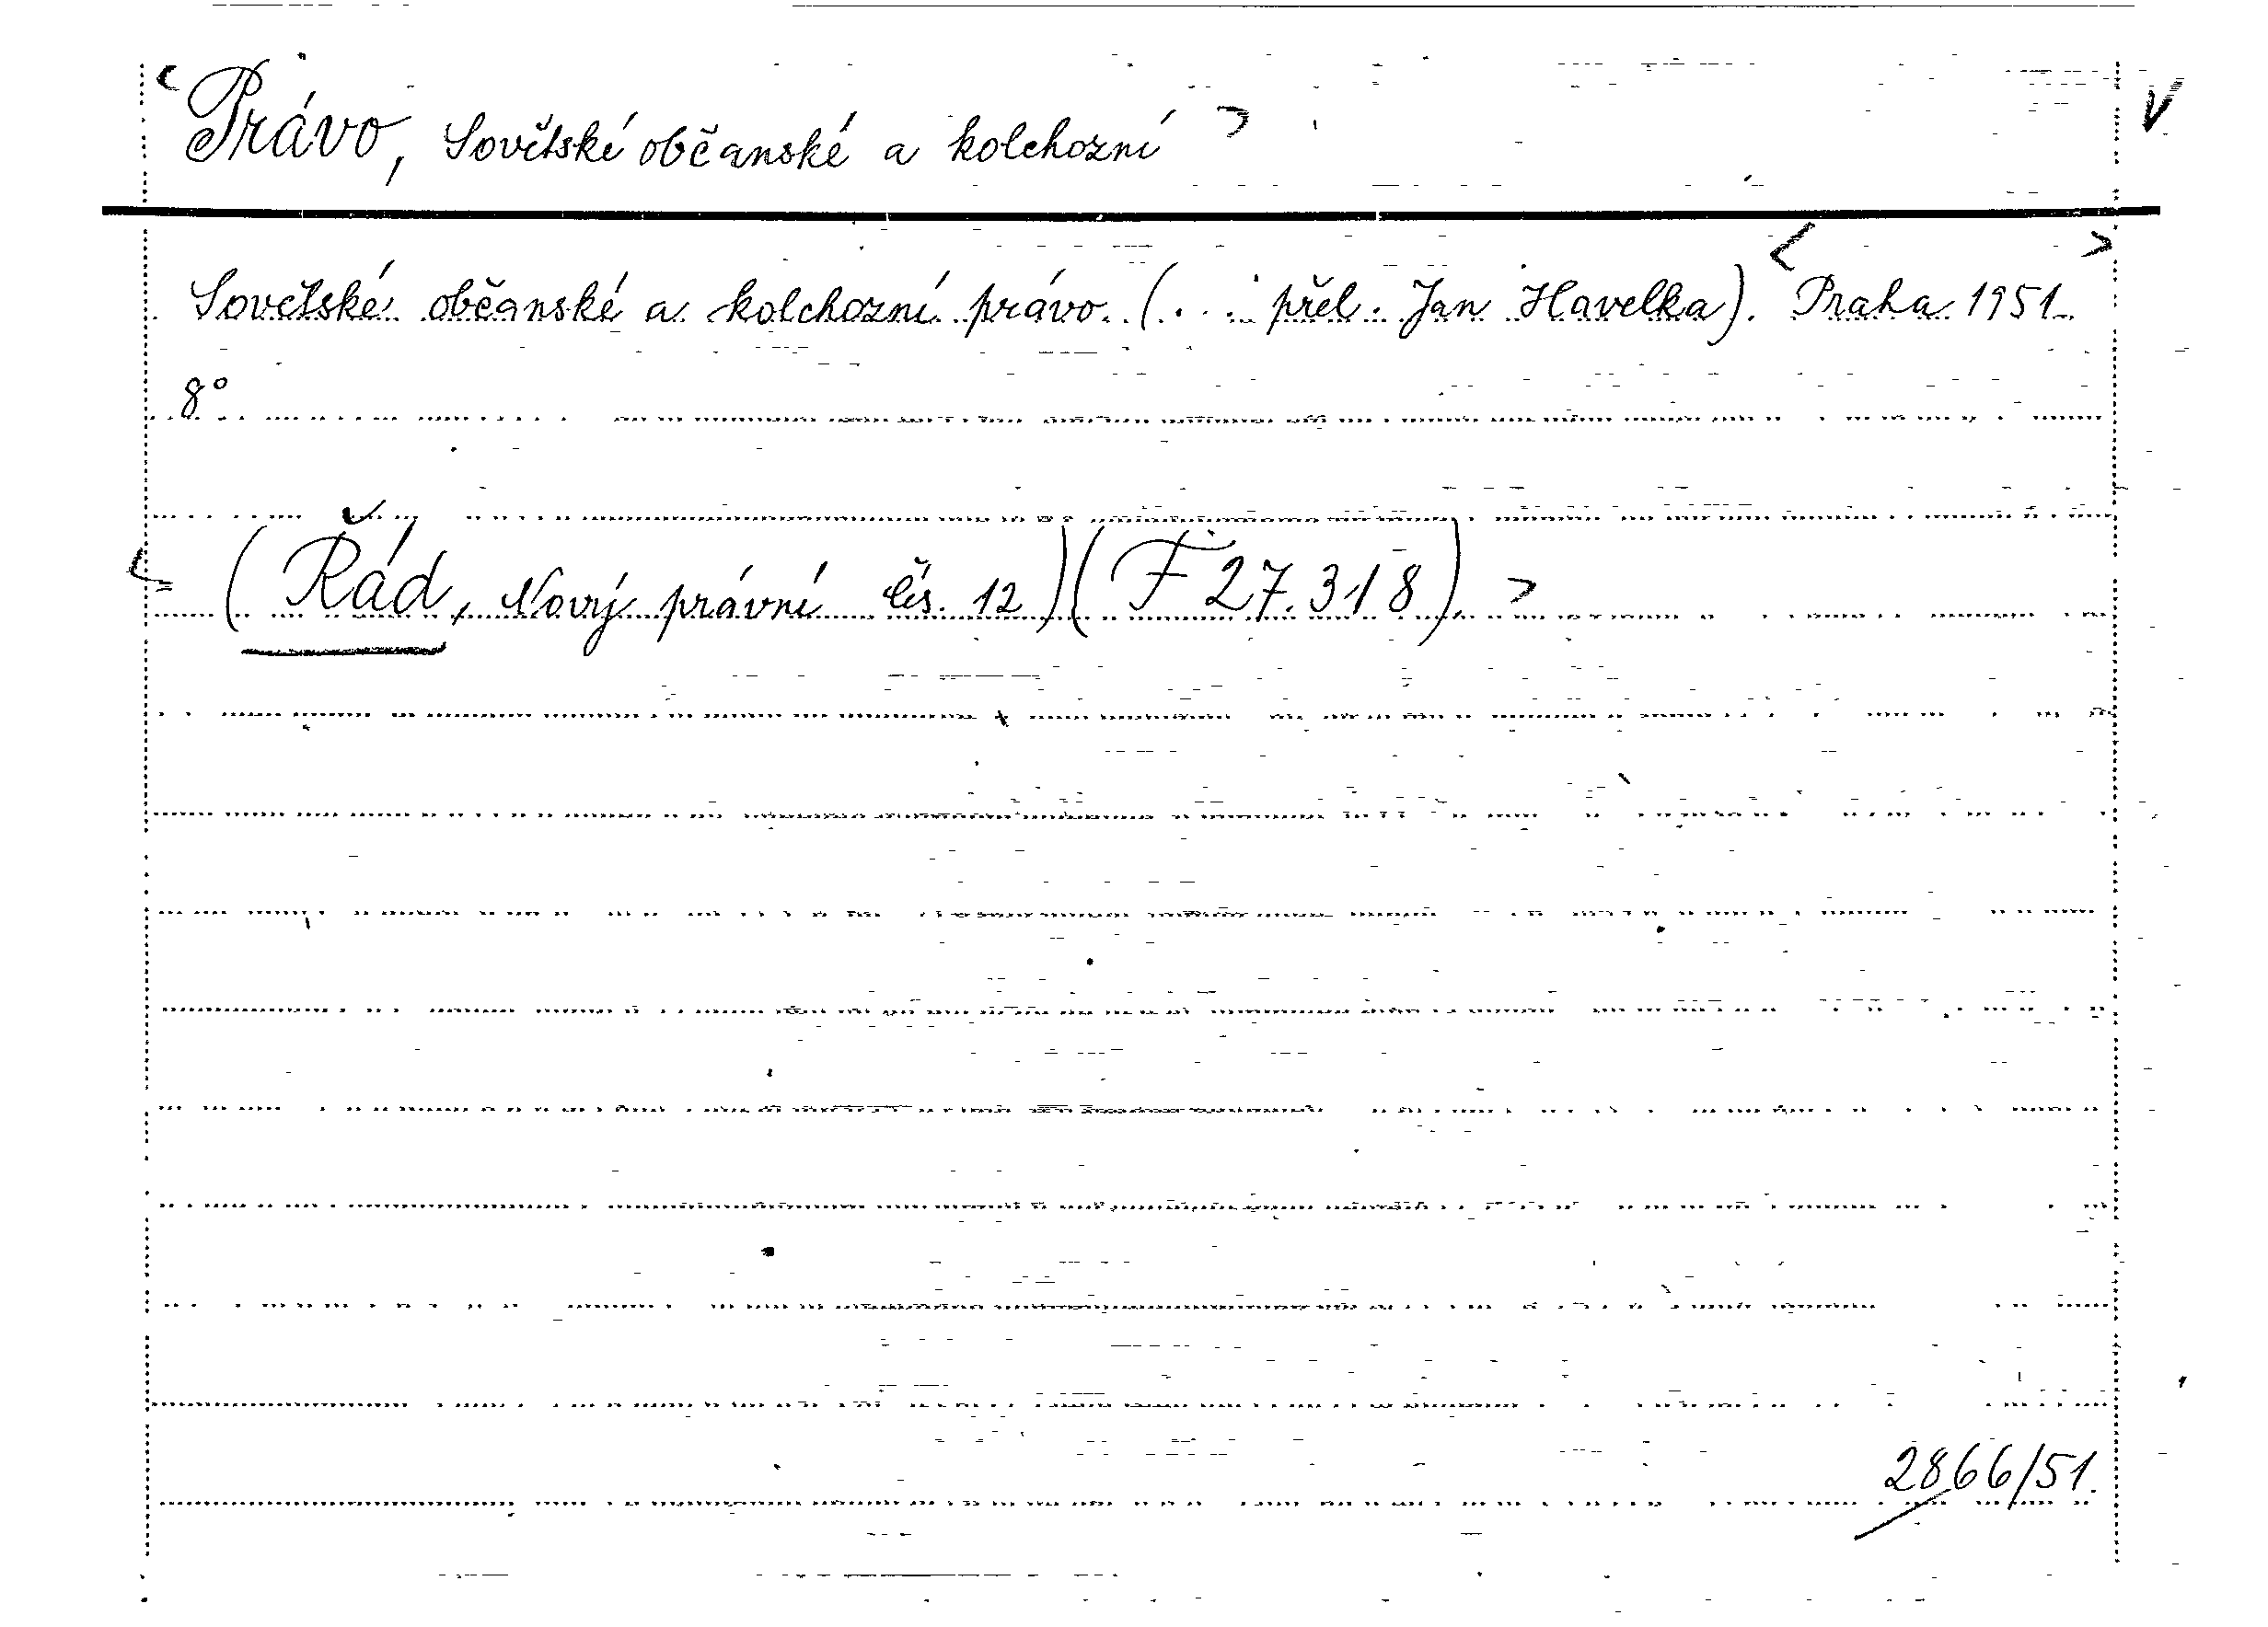 <Právo, Sovětské občanské a kolchozní> V
Sovětské občanské a kolchozní právo. (... přel. Jan Havelka). <Praha 1951.>
8°
<= (Řád, Nový právní čís. 12) (F 27.318).>
2866/51.